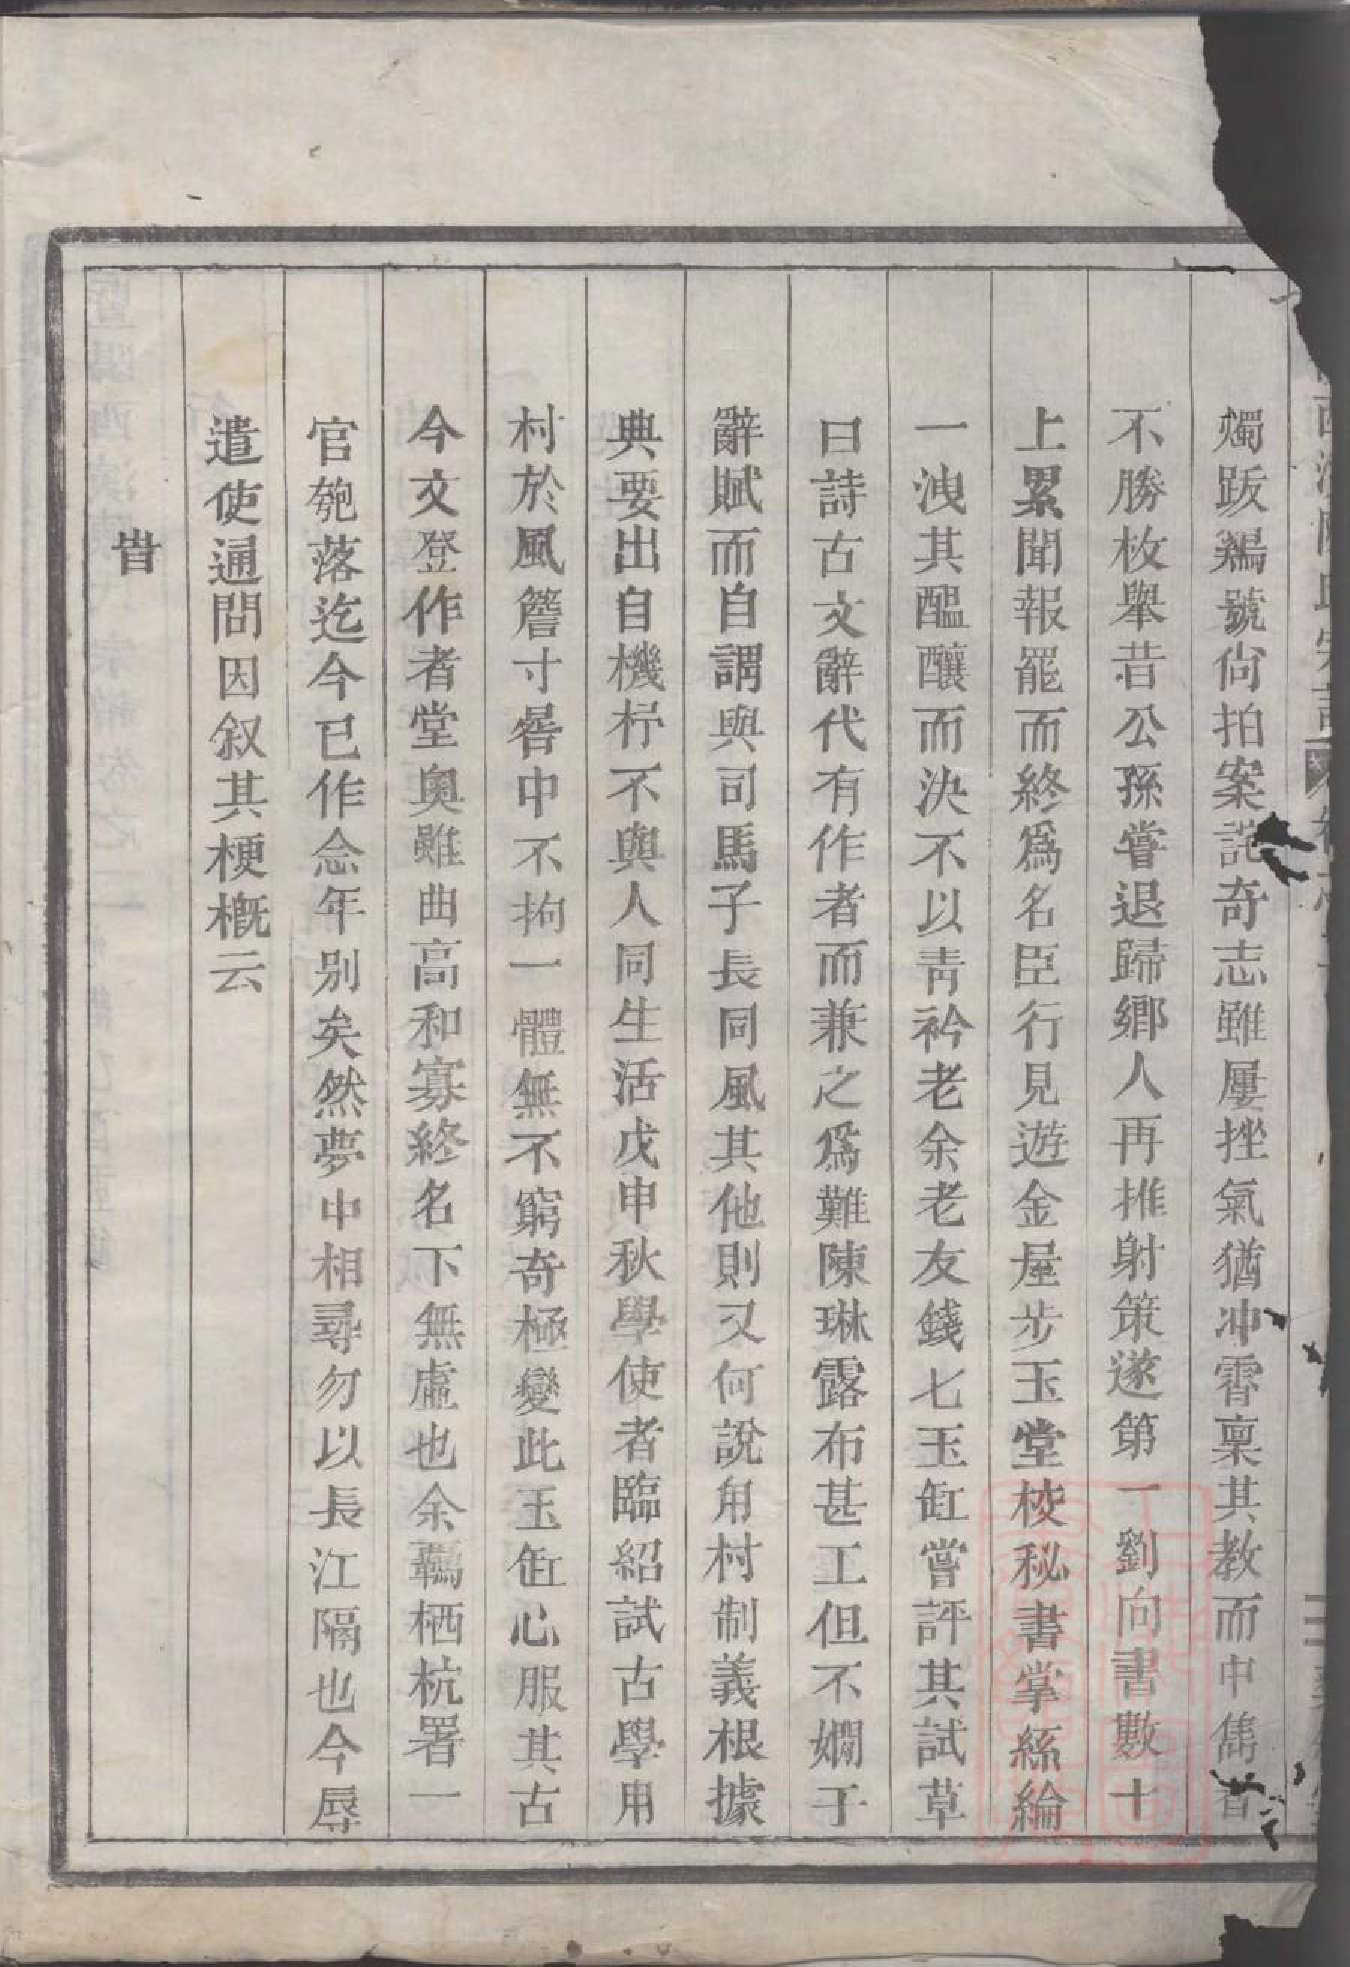 燭跋鷄號尙拍案說奇志雖屢挫氣猶冲霄稟其教而中雋者
不勝枚舉昔公孫嘗退歸鄉人再推射策遂第一劉向書數十
上累聞報罷而終爲名臣行見遊金屋步玉堂校秘書掌絲綸
一洩其醞釀而決不以靑衿老余老友錢七玉缸嘗評其試草
曰詩古文辭代有作者而兼之爲難陳琳露布甚工但不嫺于
辭賦而自謂與司馬子長同風其他則又何說用村制義根據
典要出自機杼不與人同生活戊申秋學使者臨紹試古學用
村於風簷寸晷中不拘一體無不窮奇極變此玉缸心服其古
今文登作者堂奧雖曲高和寡終名下無虛也余羈栖杭署一
官匏落迄今已作念年別矣然夢中相尋勿以長江隔也今辱
遣使通問因叙其梗概云
旹